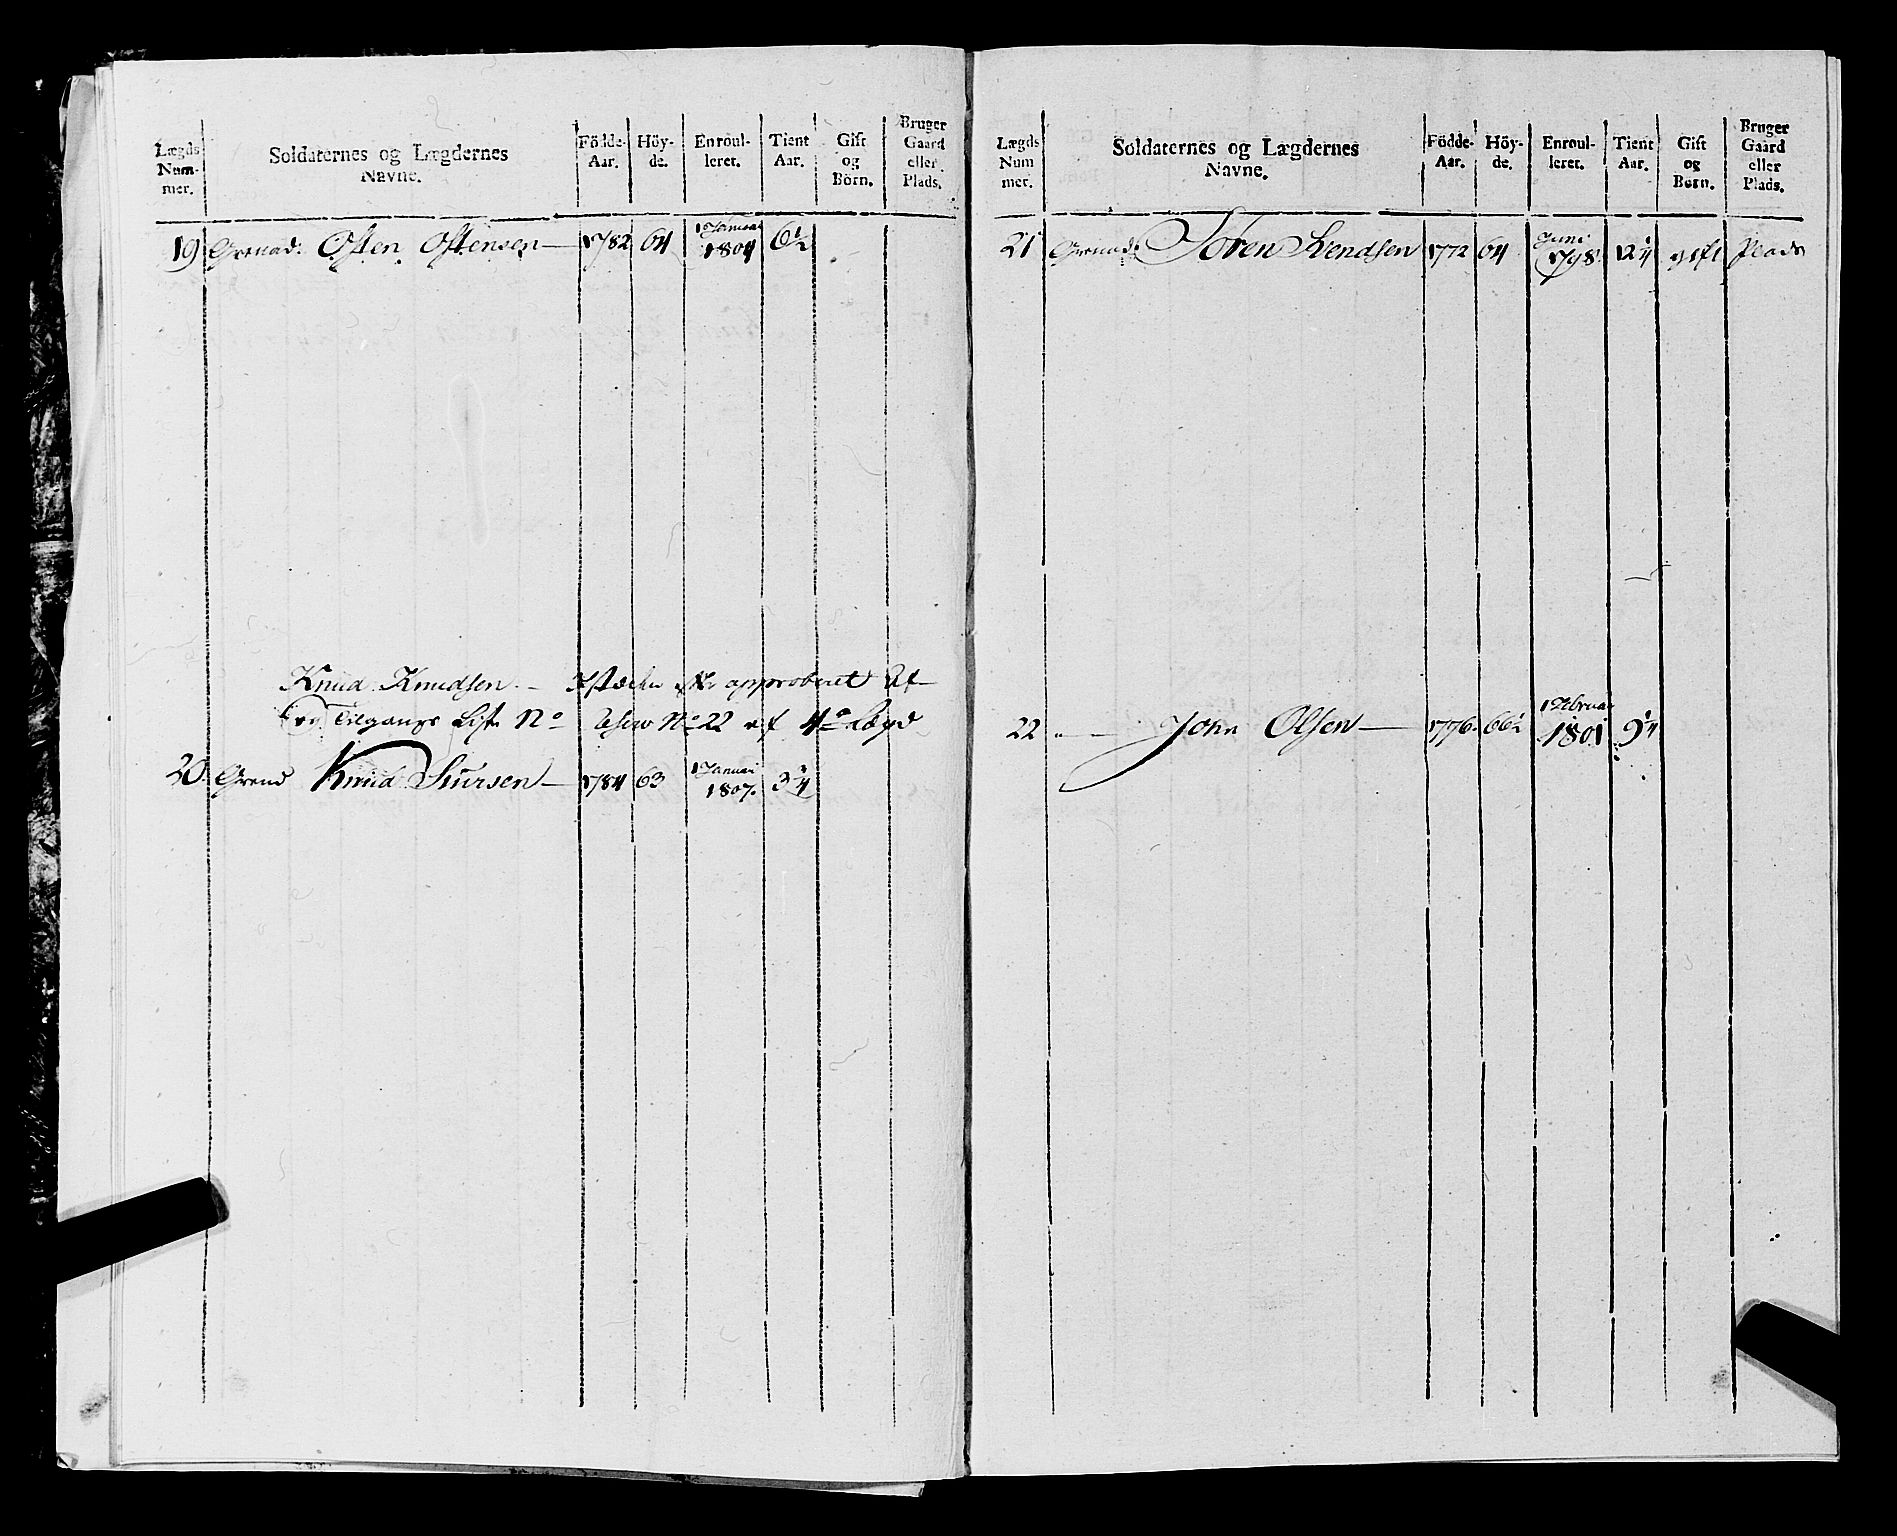 Lægds Num- mer.
Soldaternes og Lægdernes Navne.
Födde- Aar.
Höy- de.
Enroul- leret.
Tient Aar.
Gift og Börn.
Bruger Gaard eller Plads.
19 Grenad: Osten Ostensen 1782 64 1 Januar 1804 6½
Knud Knudsen approberet
Tilgangs Liste No No 22 af 4de Lægd
20 Grend Knud Siursen 1784 63 1 Januari 1807. 3¼
Lægds Num mer.
Soldaternes og Lægdernes Navne.
Födde- Aar.
Höy- de.
Enroul- leret.
Tient Aar.
Gift og Børn.
Bruger Gaard eller Plads.
21 Grenad: Soren Svendsen 1772 64 Juni 1798. 12¼ gift Plads
22 " John Olsen 1776. 66½ 1 Februar 1801 9¼